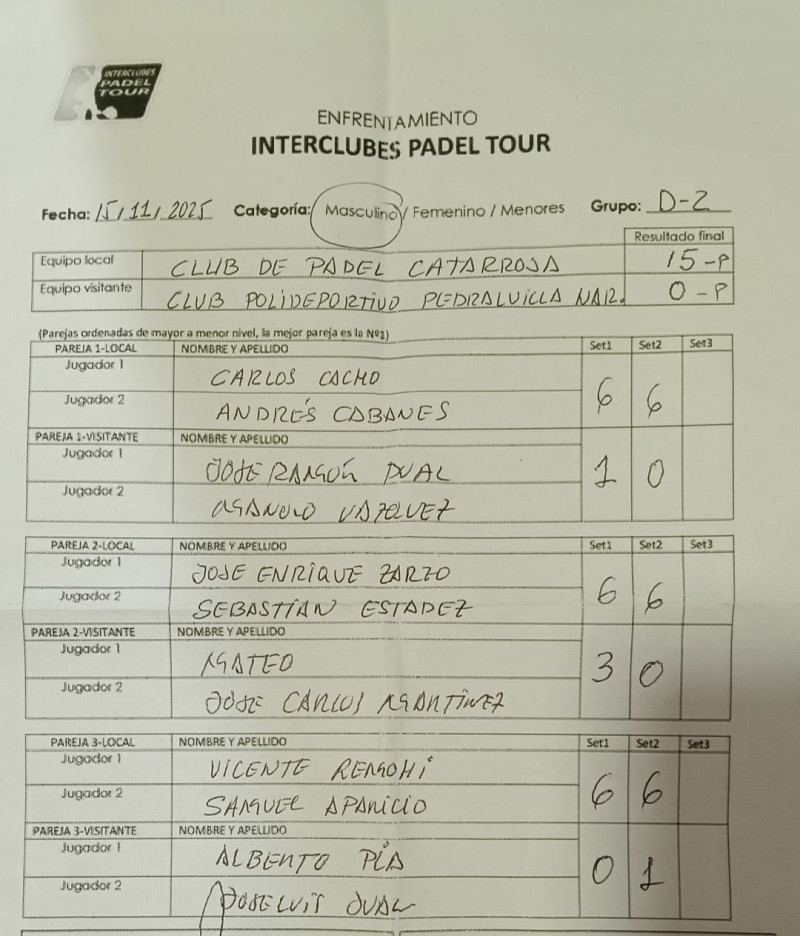 INTERCLUBES
PADEL
TOUR
ENFRENTAMIENTO
INTERCLUBES PADEL TOUR
Fecha: 15/11/2025 Categoría: Masculino / Femenino / Menores Grupo: D-2
Resultado final
Equipo local CLUB DE PADEL CATARROJA 15-P
Equipo visitante CLUB POLIDEPORTIVO PEDRALVILLA NAR. 0-P
(Parejas ordenadas de mayor a menor nivel, la mejor pareja es la Nº1)
PAREJA 1-LOCAL NOMBRE Y APELLIDO Set1 Set2 Set3
Jugador 1 CARLOS CACHO
Jugador 2 ANDRÉS CABANES
6 6
PAREJA 1-VISITANTE NOMBRE Y APELLIDO
Jugador 1 JOSE RAMÓN DUAL
Jugador 2 MANOLO VAZQUEZ
1 0
PAREJA 2-LOCAL NOMBRE Y APELLIDO Set1 Set2 Set3
Jugador 1 JOSE ENRIQUE ZARZO
Jugador 2 SEBASTIAN ESTADEZ
6 6
PAREJA 2-VISITANTE NOMBRE Y APELLIDO
Jugador 1 MATEO
Jugador 2 JOSE CARLOS MARTINEZ
3 0
PAREJA 3-LOCAL NOMBRE Y APELLIDO Set1 Set2 Set3
Jugador 1 VICENTE REMOHI
Jugador 2 SAMUEL APARICIO
6 6
PAREJA 3-VISITANTE NOMBRE Y APELLIDO
Jugador 1 ALBERTO PLA
Jugador 2 JOSE LUIS DUAL
0 1